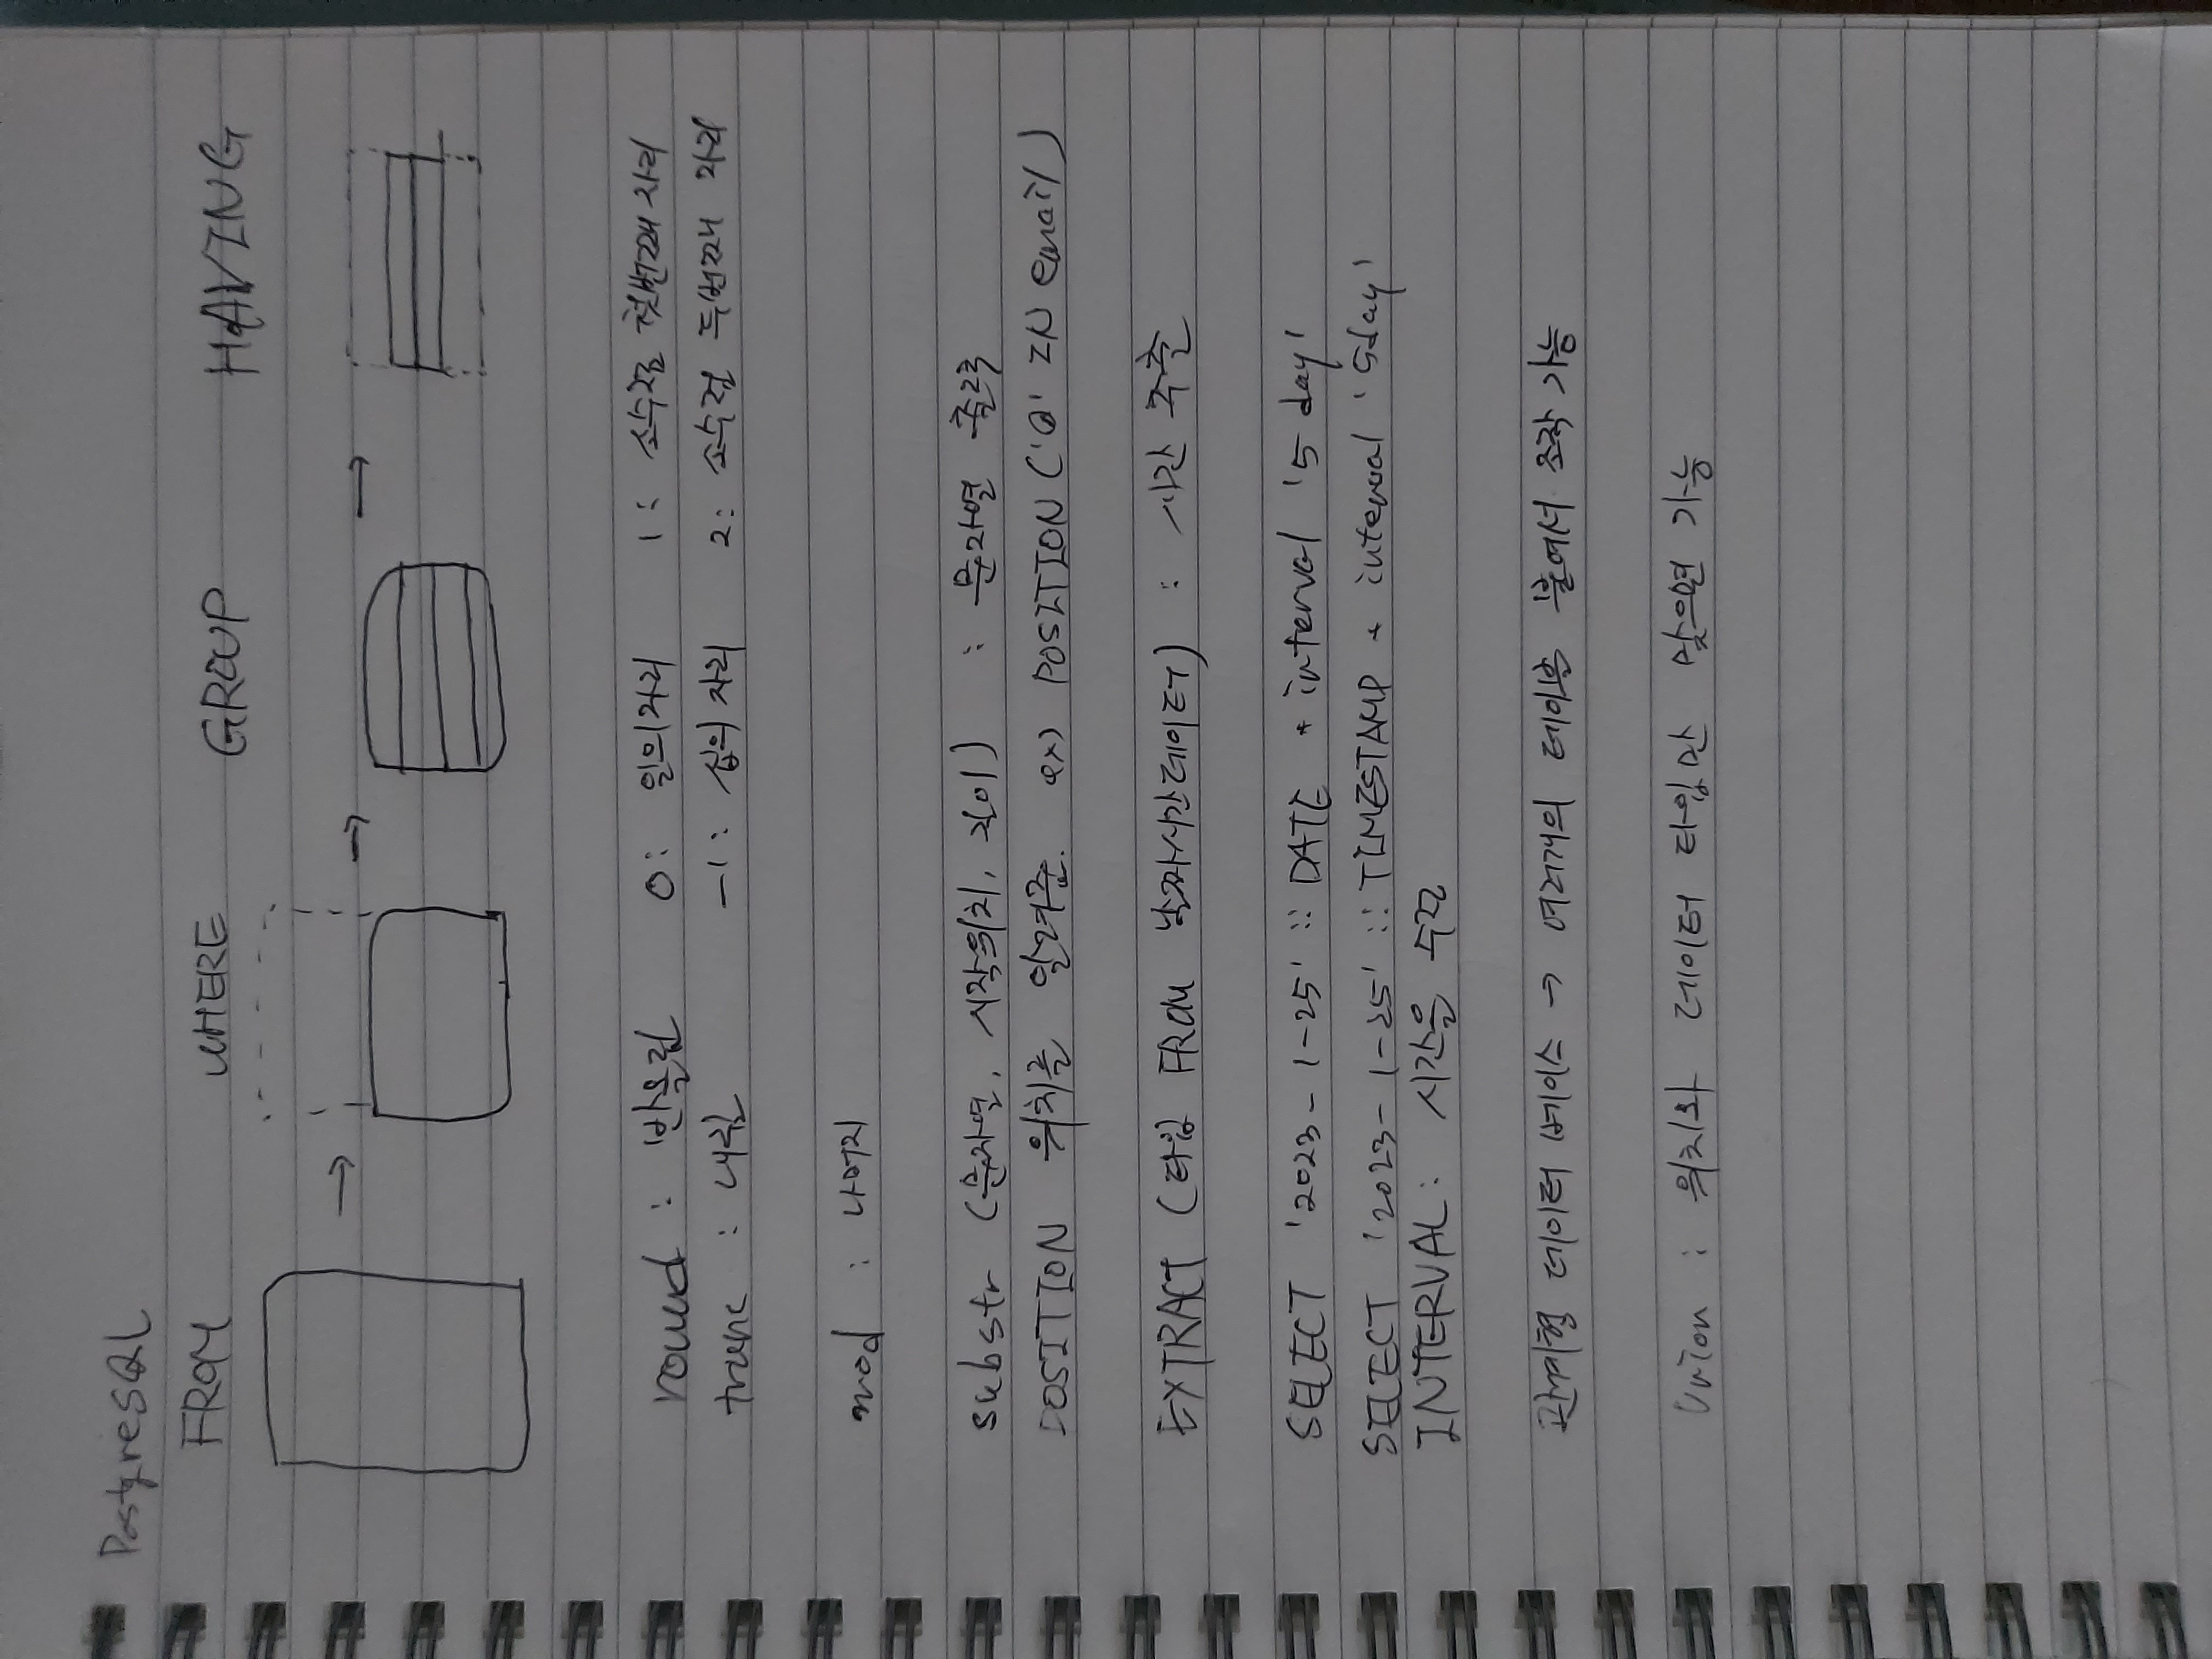 PostgreSQL
FROM WHERE GROUP HAVING
round : 반올림 0: 일의자리 1: 소수점 첫번째 자리
trunc : 내림 -1: 십의 자리 2: 소수점 두번째 자리
mod : 나머지
substr (문자열, 시작위치, 길이) : 문자열 출력
POSITION 위치를 알려줌. ex) POSITION ('@' IN email)
EXTRACT (타입 FROM 날짜시간데이터) : 시간 추출
SELECT '2023-1-25' :: DATE + interval '5 day'
SELECT '2023-1-25' :: TIMESTAMP + interval '5day'
INTERVAL: 시간을
관계형 데이터 베이스 → 여러개의 테이블 붙여서 조작 가능
Union : 위치와 데이터 타입만 맞으면 가능